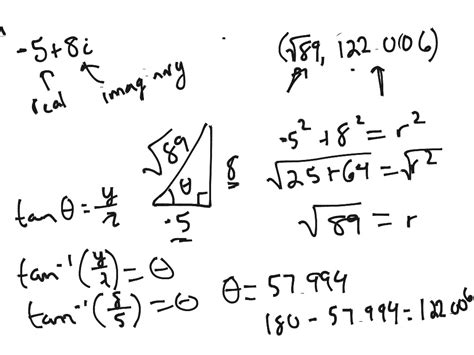 -5+8i
real
imaginary
(√89, 122.006)
-5² + 8² = r²
√25+64 = √r²
√89 = r
√89
θ
8
-5
tan θ = y/x
tan⁻¹(y/x) = θ
tan⁻¹(8/5) = θ
θ = 57.994
180 - 57.994 = 122.006